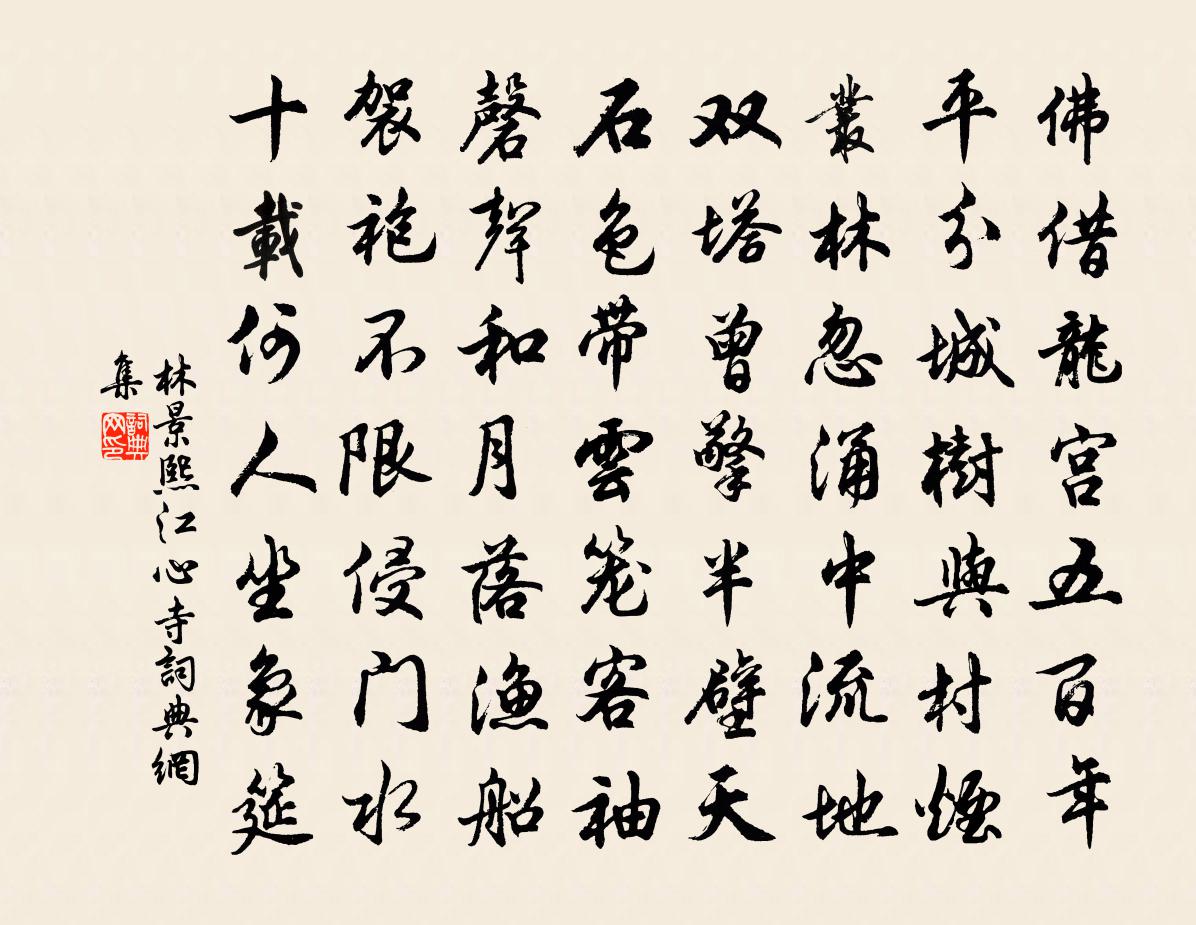 佛借龍宮五百年
平分城樹與村煙
叢林忽涌中流地
双塔曾擎半壁天
石色帶雲笼客袖
磬聲和月落漁船
袈袍不限侵门水
十載何人坐象筵
林景熙江心寺詞典網
集
詞典网印